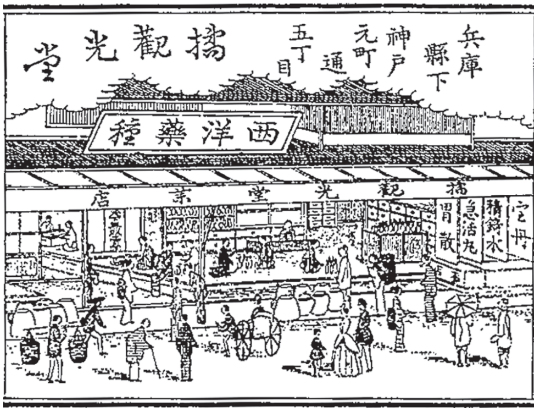 兵庫
縣下
神戸
元町
通
五丁
目
橘觀光堂
西洋藥種
橘觀光堂薬店
宝丹
精錡水
急活丸
胃散